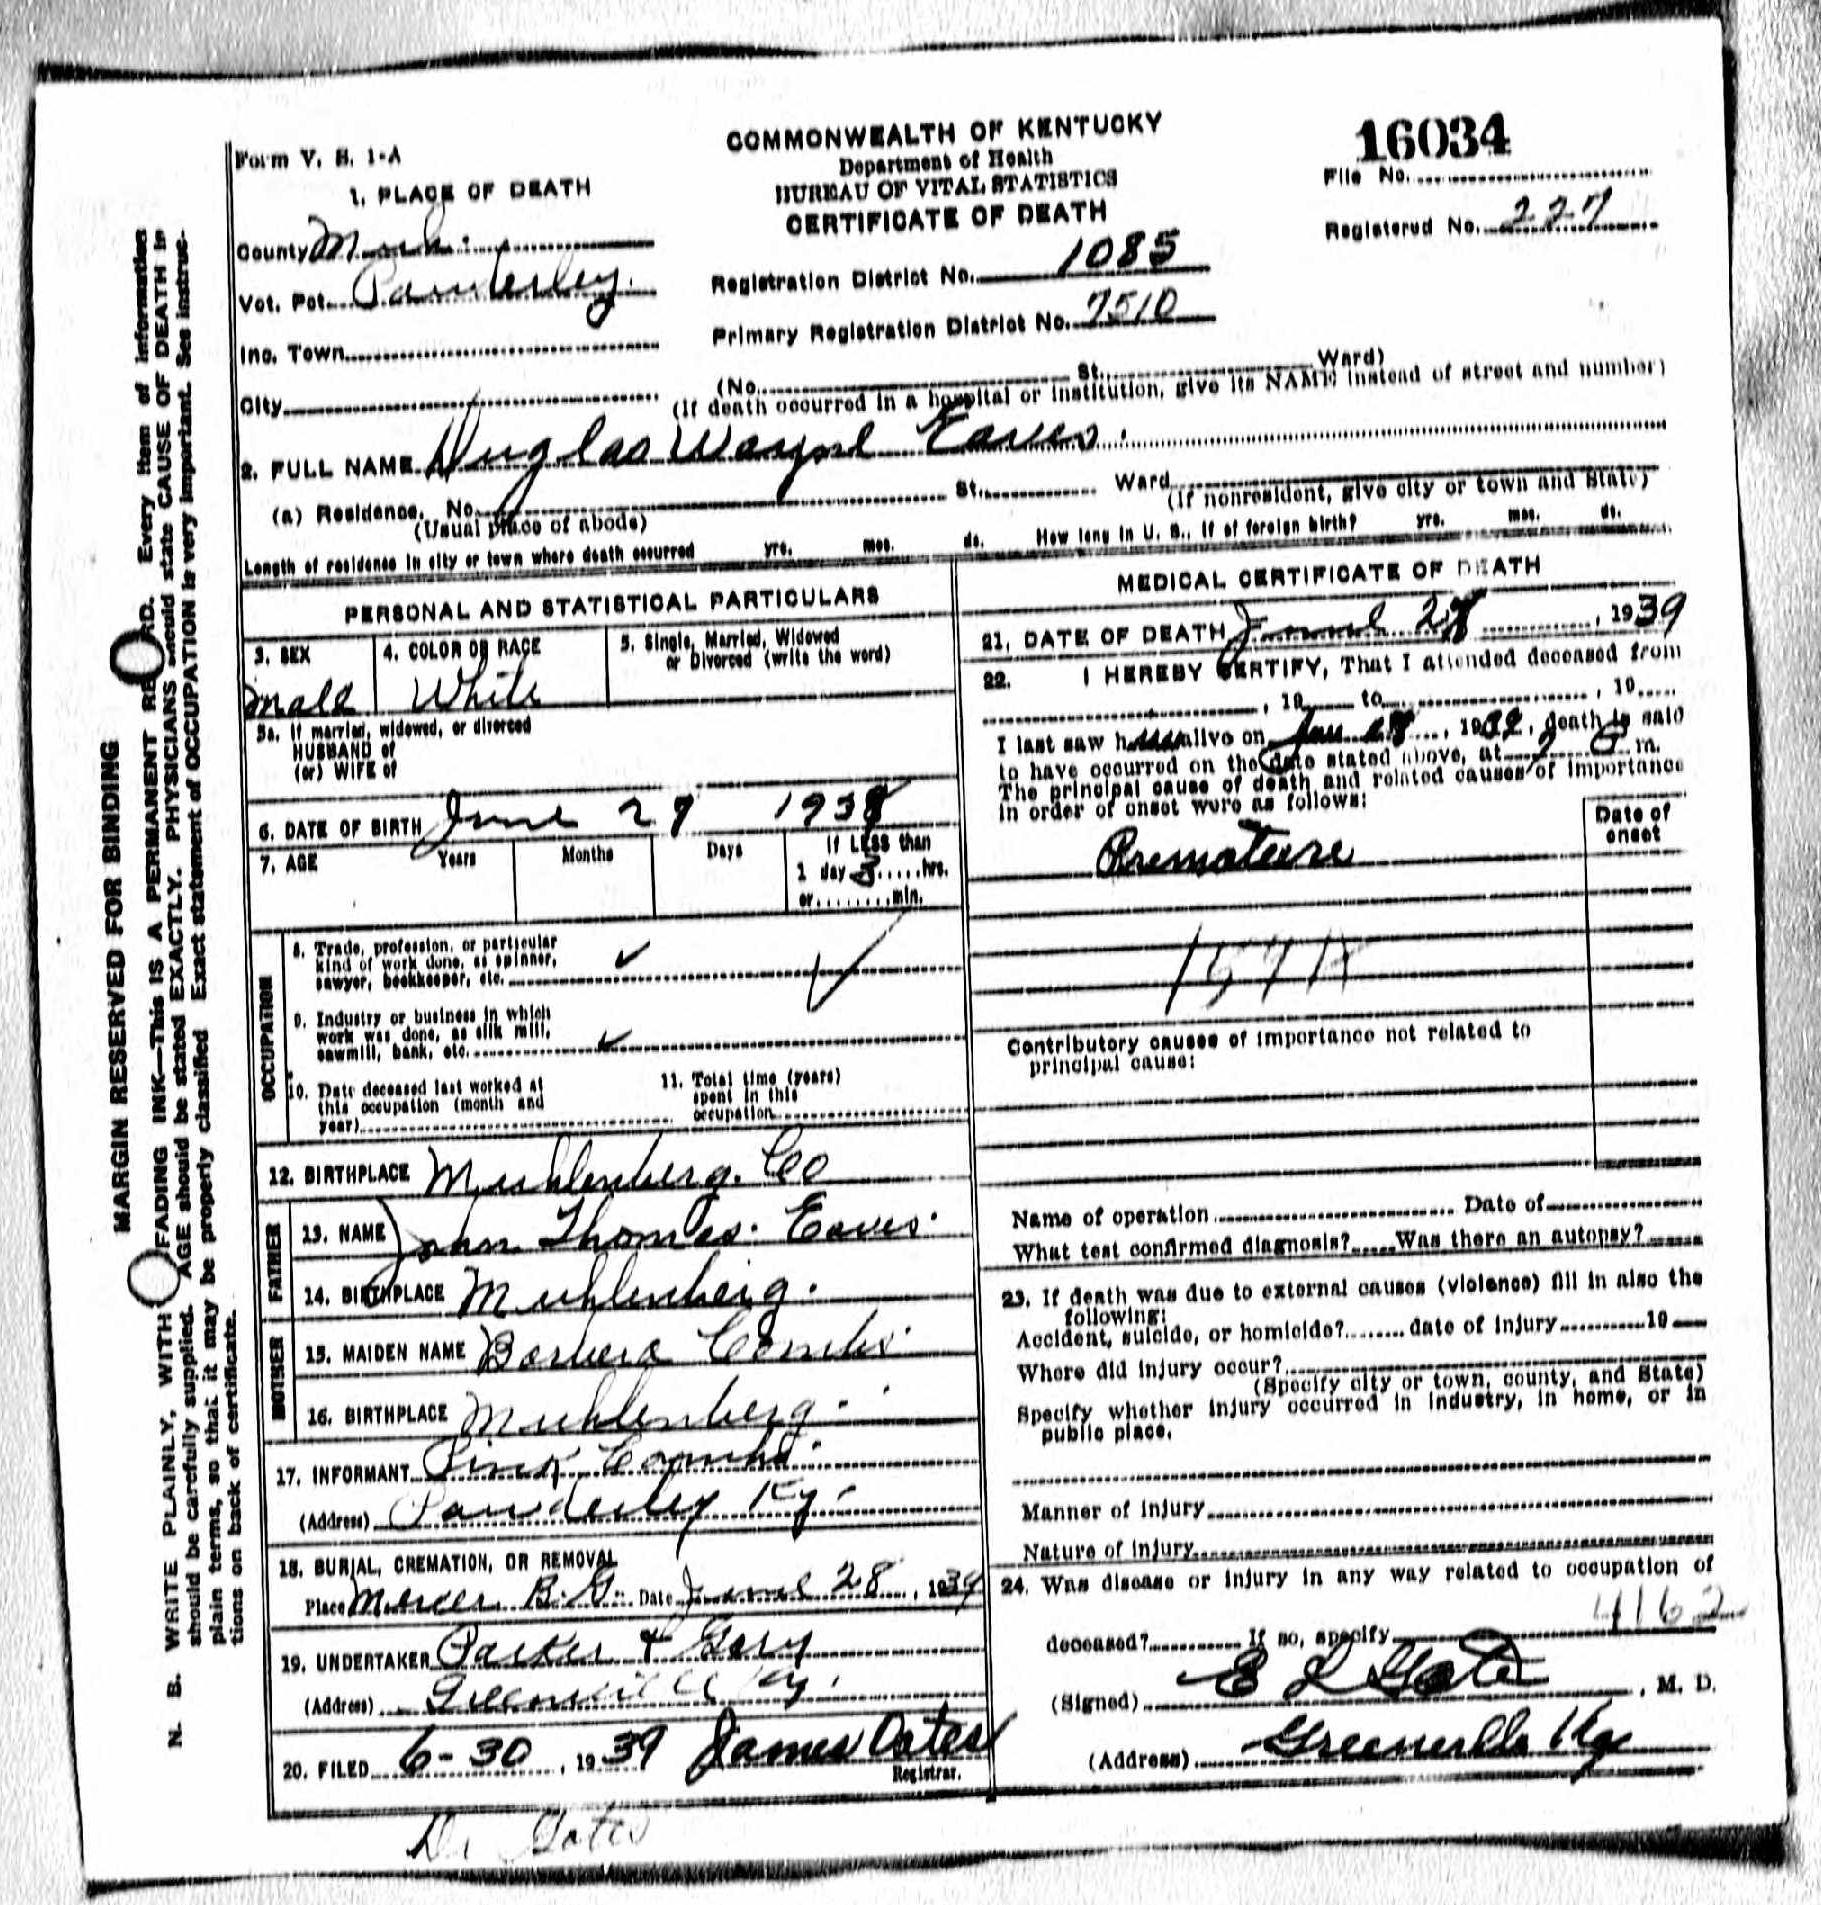 Form V. S. 1-A
COMMONWEALTH OF KENTUCKY
Department of Health
BUREAU OF VITAL STATISTICS
CERTIFICATE OF DEATH
16034
File No.
Registered No. 227
1. PLACE OF DEATH
County Muh.
Vot. Pct. Powderley.
Inc. Town
City
Registration District No. 1085
Primary Registration District No. 7510
(No. St. Ward)
(If death occurred in a hospital or institution, give its NAME instead of street and number)
2. FULL NAME Duglas Wayne Eaves.
(a) Residence. No. St. Ward
(Usual place of abode) (If nonresident, give city or town and State)
Length of residence in city or town where death occurred yrs. mos. ds. How long in U. S., if of foreign birth? yrs. mos. ds.
PERSONAL AND STATISTICAL PARTICULARS
3. SEX
Male
4. COLOR OR RACE
White
5. Single, Married, Widowed
or Divorced (write the word)
5a. If married, widowed, or divorced
HUSBAND of
(or) WIFE of
6. DATE OF BIRTH June 27 193
7. AGE Years Months Days If LESS than
1 day hrs.
or min.
OCCUPATION
8. Trade, profession, or particular
kind of work done, as spinner,
sawyer, bookkeeper, etc.
9. Industry or business in which
work was done, as silk mill,
sawmill, bank, etc.
10. Date deceased last worked at
this occupation (month and
year)
11. Total time (years)
spent in this
occupation
12. BIRTHPLACE Muhlenberg. Co
FATHER
13. NAME John Thomas. Eaves.
14. BIRTHPLACE Muhlenberg.
MOTHER
15. MAIDEN NAME Barbera Combs.
16. BIRTHPLACE Muhlenberg.
17. INFORMANT Pink Combs.
(Address) Powderley Ky.
18. BURIAL, CREMATION, OR REMOVAL
Place Mercer B. G. Date June 28, 1939
19. UNDERTAKER Parker & Gary
(Address) Greenville Ky.
20. FILED 6-30, 1939 James Oates
Registrar.
MEDICAL CERTIFICATE OF DEATH
21. DATE OF DEATH June 2, 1939
22. I HEREBY CERTIFY, That I attended deceased from
, 19 to , 19
I last saw h alive on 19 , death is said
to have occurred on the date stated above, at m.
The principal cause of death and related causes of importance
in order of onset were as follows:
Date of
onset
Premature
159
Contributory causes of importance not related to
principal cause:
Name of operation Date of
What test confirmed diagnosis? Was there an autopsy?
23. If death was due to external causes (violence) fill in also the
following:
Accident, suicide, or homicide? date of injury 19
Where did injury occur?
(Specify city or town, county, and State)
Specify whether injury occurred in industry, in home, or in
public place.
Manner of injury
Nature of injury
24. Was disease or injury in any way related to occupation of
deceased? If so, specify 4162
(Signed) E L Gates, M. D.
(Address) Greenville Ky
Dr Gates
MARGIN RESERVED FOR BINDING
N. B. WRITE PLAINLY, WITH FADING INK—THIS IS A PERMANENT RE RD. Every item of information
should be carefully supplied. AGE should be stated EXACTLY. PHYSICIANS should state CAUSE OF DEATH in
plain terms, so that it may be properly classified. Exact statement of OCCUPATION is very important. See instruc-
tions on back of certificate.